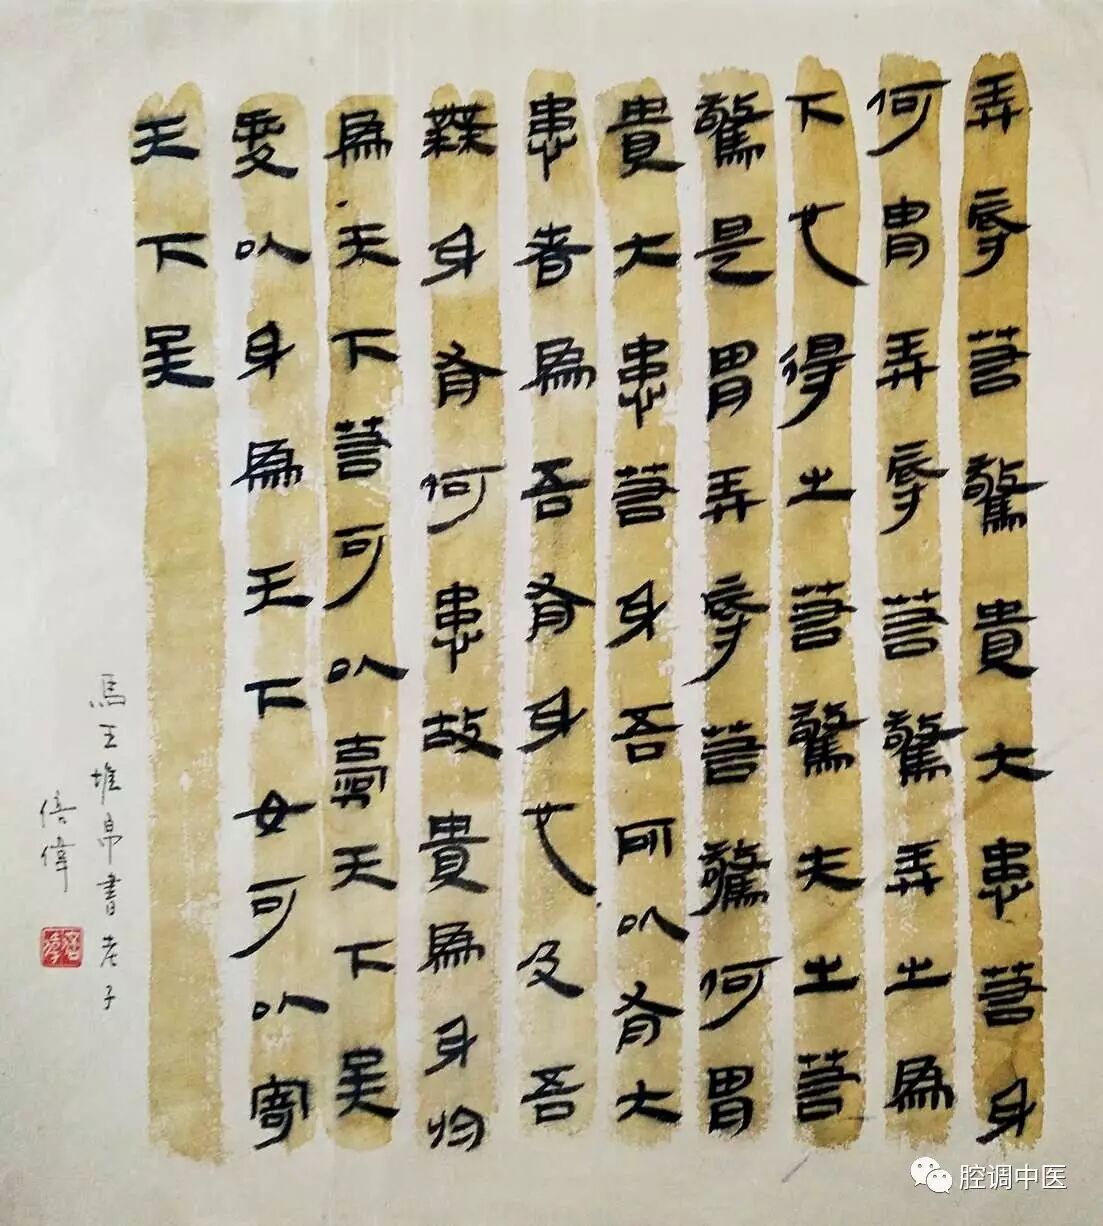 弄辱若驚貴大患若身
何胃弄辱若驚弄之為
下也得之若驚失之若
驚是胃弄辱若驚何胃
貴大患若身吾所以有大
患者為吾有身也及吾
無身有何患故貴為身於
為天下若可以橐天下矣
愛以身為天下女可以寄
天下矣
馬王堆帛書老子
倍偉
腔调中医